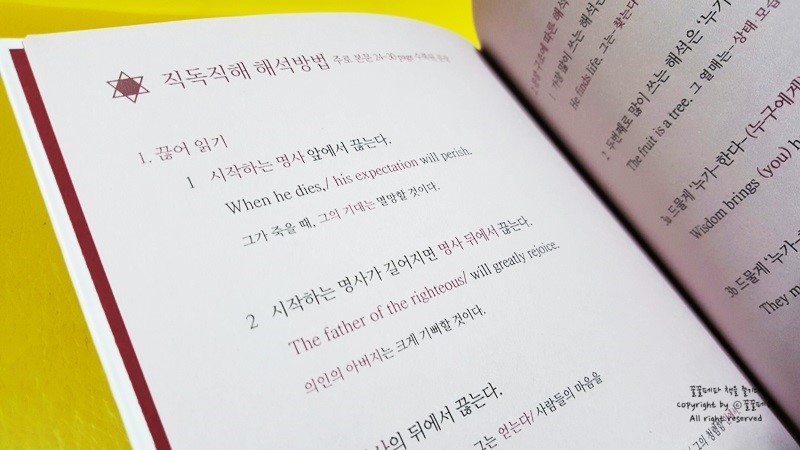 직독직해 해석방법 주로 본문 24~30 page
1. 끊어 읽기
1 시작하는 명사 앞에서 끊는다.
When he dies,/ his expectation will perish.
그가 죽을 때, 그의 기대는 멸망할 것이다.
2 시작하는 명사가 길어지면 명사 뒤에서 끊는다.
The father of the righteous/ will greatly rejoice.
의인의 아버지는 크게 기뻐할 것이다.
뒤에서 끊는다.
그는 얻는다/ 사람들의 마음을
1 가장 많이 쓰는 해석은
He finds life. 그는 찾는다
2 두번째로 많이 쓰는 해석은 '누가
The fruit is a tree. 그 열매는 상태 모습
3a 드물게 '누가 한다 (누구에게
Wisdom brings (you)
3b 드물게 '누가
They
copyright by ⓒ
All right reserved